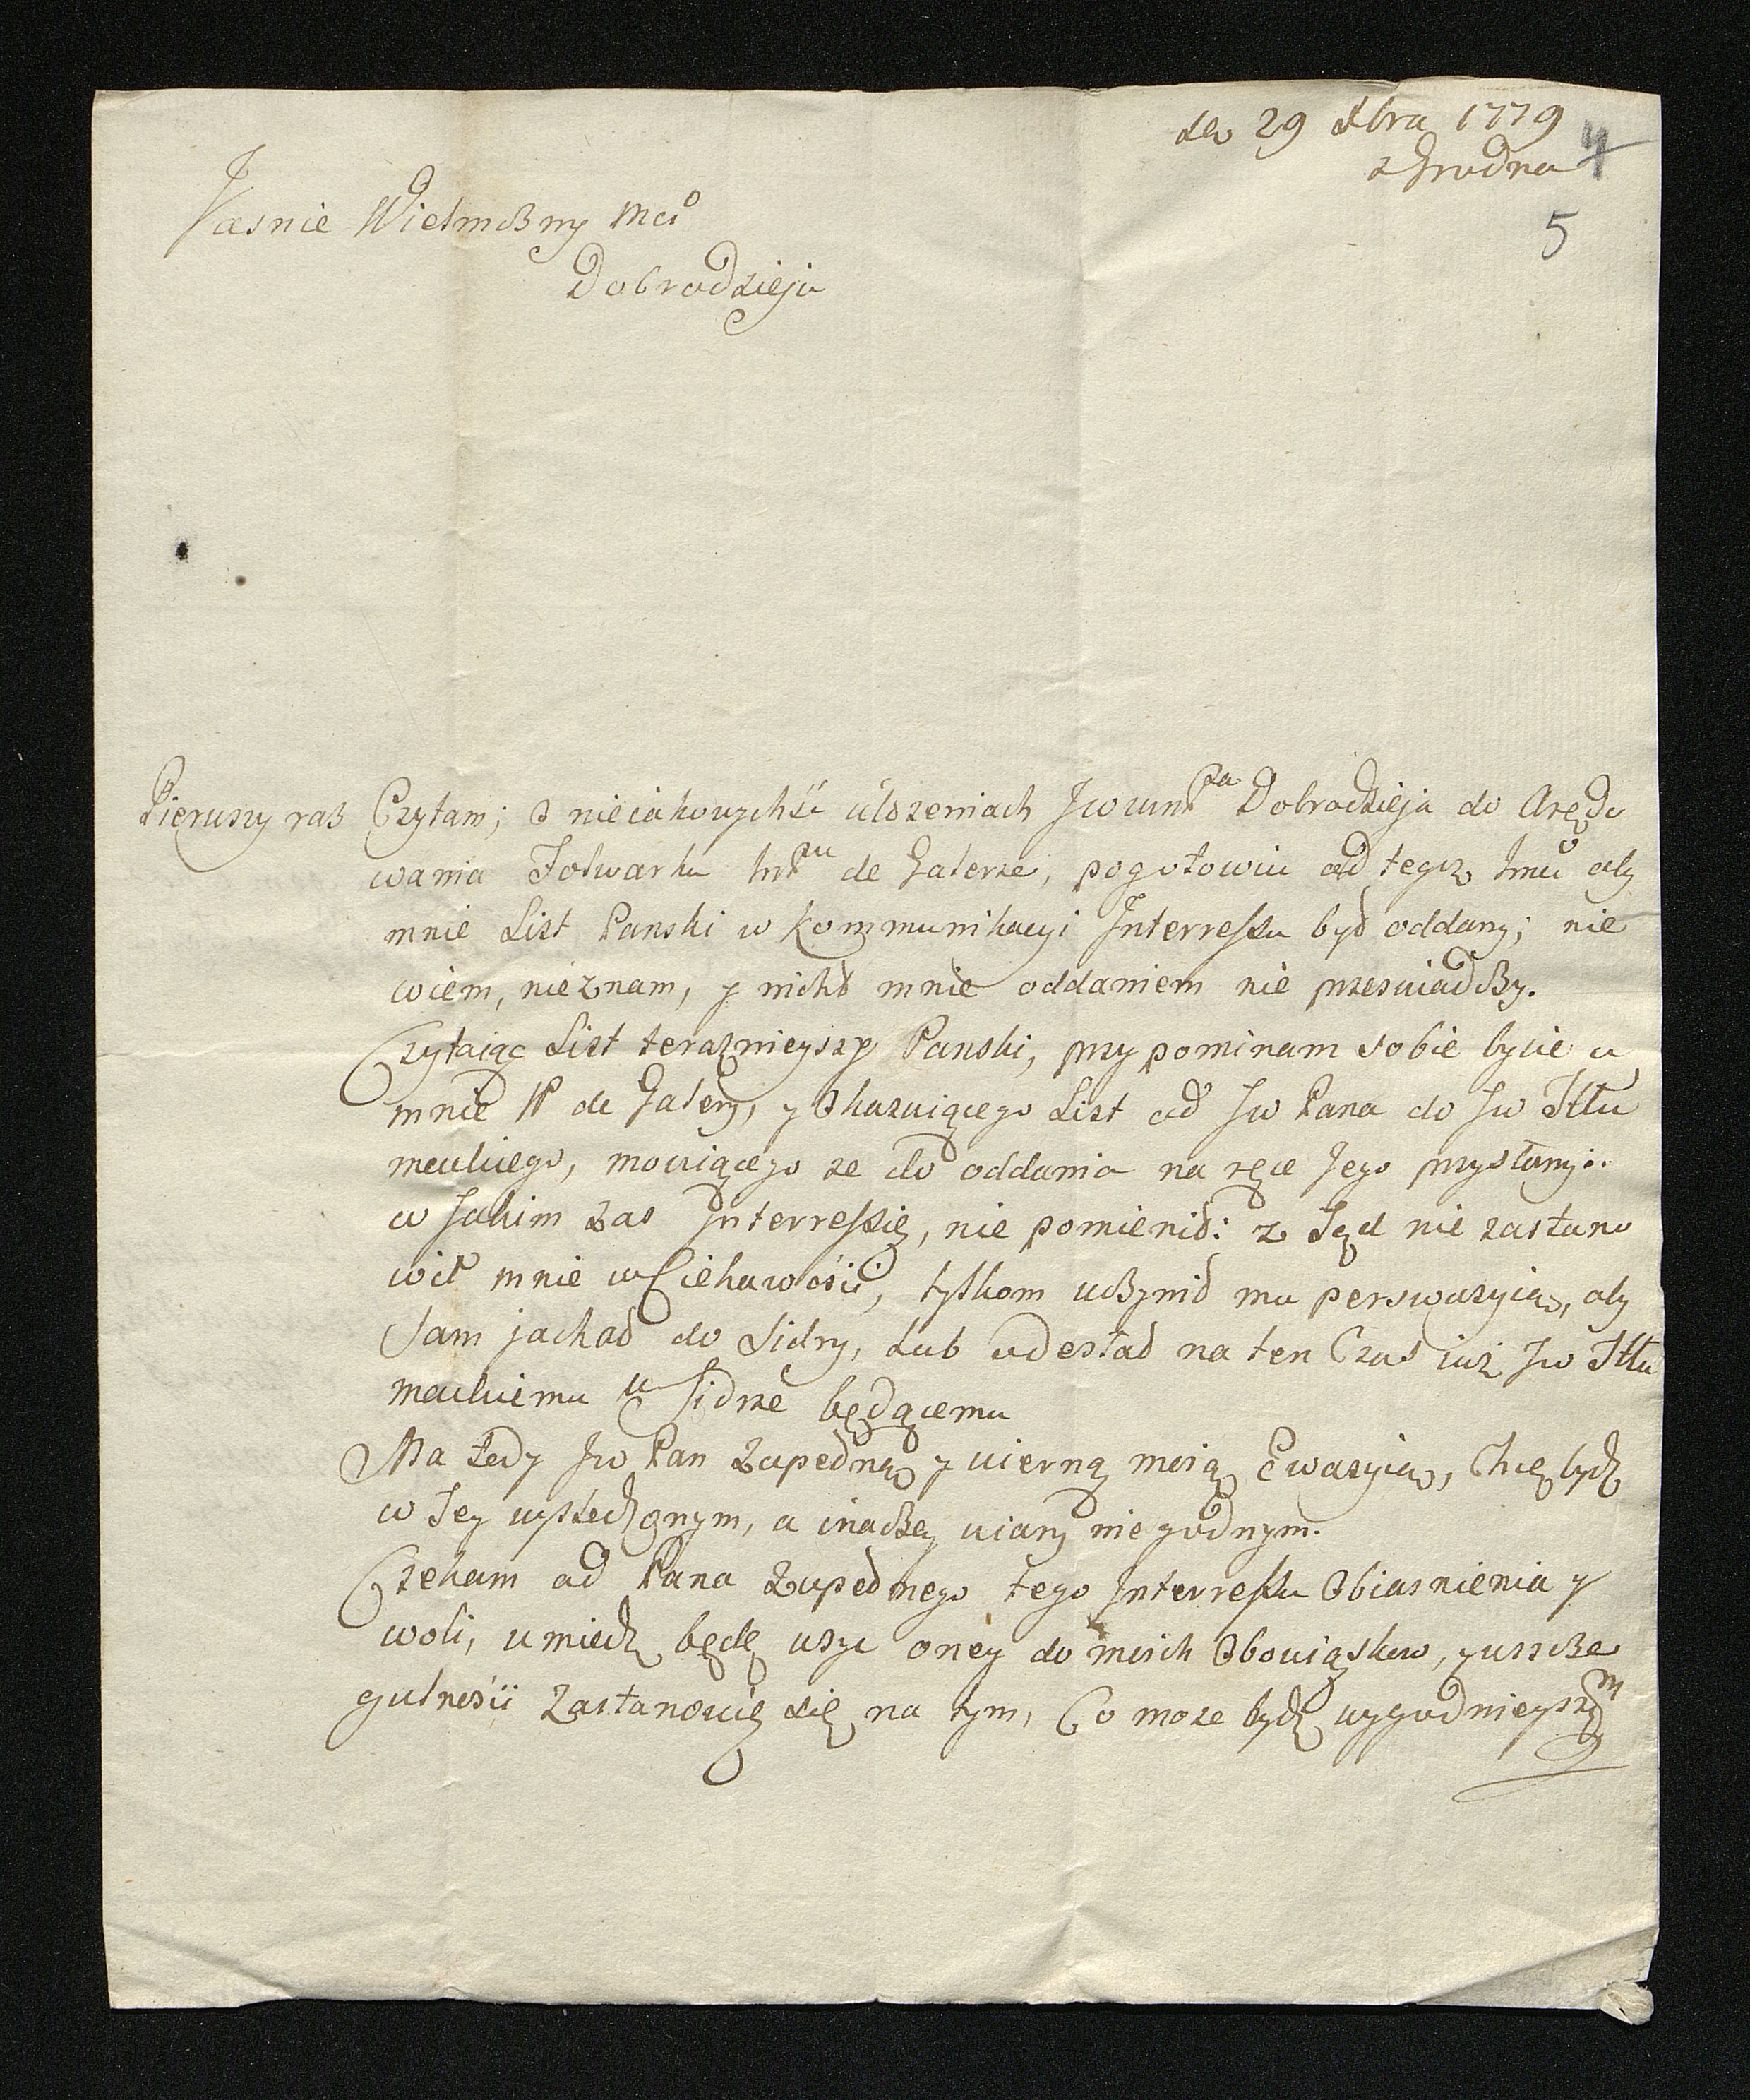 de 29 Xbra 1779
z Grodna
4
5
Jasnie Wielmożny Mci
Dobrodzieju
Pierwszy raz Czytam; o nieiakowychśc ułożeniach JWWM Pa Dobrodzieja do Arędo
wania Folwarku ImPu de Galerze, pogotowiu ad tegoż Imci aby
mnie List Panski w kommunikacyi Interressu był oddany; nie
wiem, nie znam, y nicht mnie oddaniem nie przeswiadczy.
Czytaiąc List teraznieyszy Panski, przypominam sobie bycie u
mnie JP de Galery, y Okazuiącego List od JW Pana do JW Tłu
mackiego, mowiącego ze do oddania na ręce Jego przysłany:
w Jakim zas Interressie, nie pomienił: z Tąd nie zastano
wił mnie w Ciekawości, tylkom uczynił mu perswazyią, aby
Sam jachał do Sidry, Lub odesłał na ten Czas iuż JW Tłu
mackiemu w Sidrze będącemu
Ma tedy JW Pan Zupełną y wierną moią Ewazyią, Chcę bydź
w Tey wysledzonym, a inaczey wiary niegodnym.
Czekam od Pana Zupełnego tego Interressu Obiasnienia y
woli, umiedz będę uzyc oney do moich Obowiąskow, y wszcze
gulnosci Zastanowię się na tym, Co moze bydź wygodnieyszym